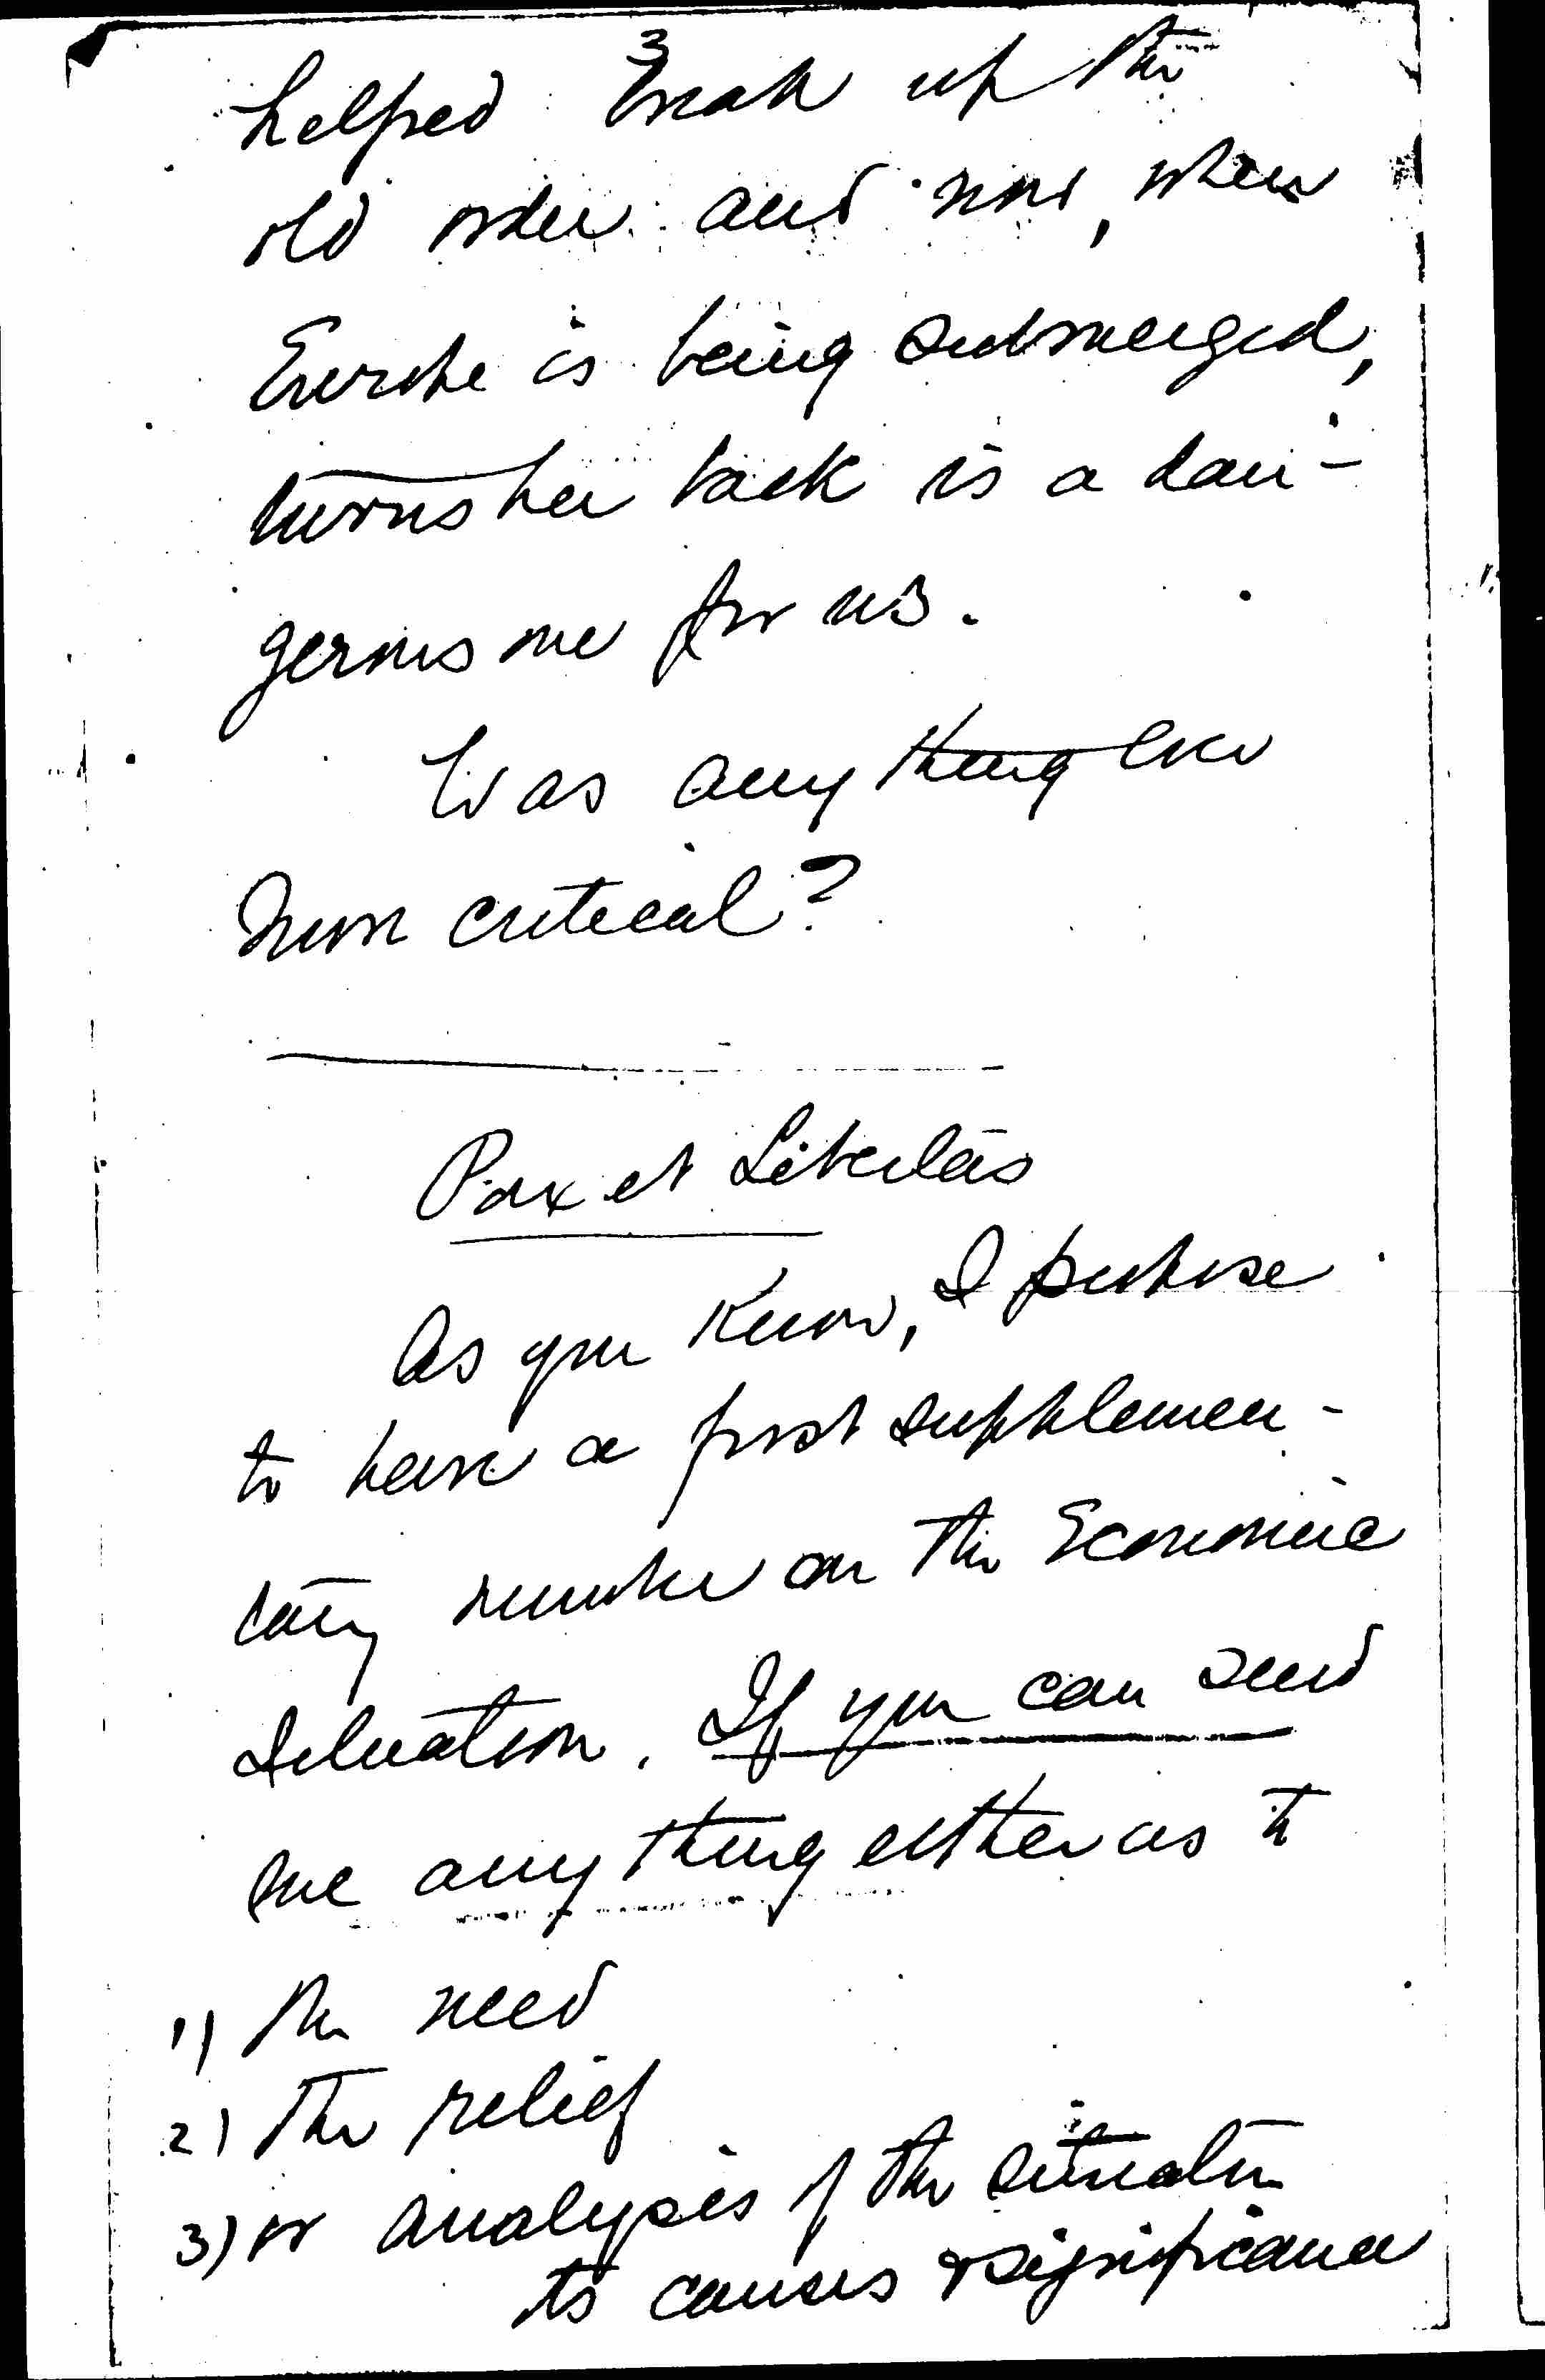 3
helped break up the
old order and now, when
Europe is being submerged,
turns her back is a dan-
gerous one for us.
Was anything ever
more critical?
Pax et Libertas
As you know, I purpose
to have a first supplemen-
tary number on the Economic
Situation. If you can send
me anything either as to
1) the need
2) the relief
3) or analysis of the situation
its causes & significance